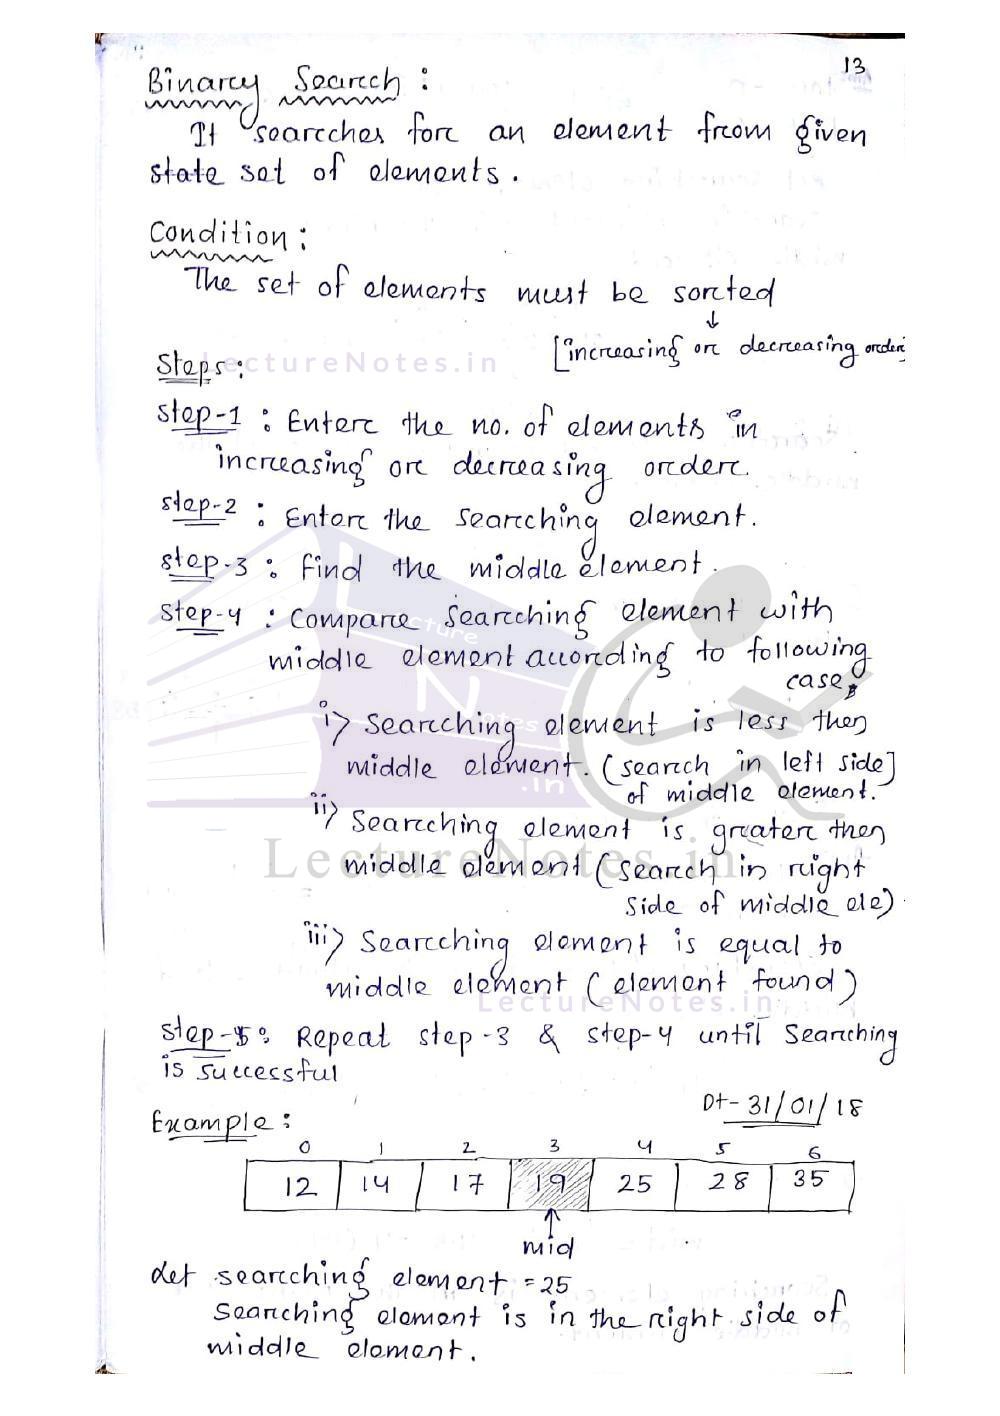 13
Binary Search :
It searches for an element from given
state set of elements.
Condition :
The set of elements must be sorted
↓
[increasing or decreasing order
LectureNotes.in
Steps :
Step-1 : Enter the no. of elements in
increasing or decreasing order.
Step-2 : Enter the searching element.
Step-3 : find the middle element.
Step-4 : Compare searching element with
middle element according to following
case,
i) Searching element is less then
middle element. (search in left side]
of middle element.
ii) Searching element is greater then
middle element (search in right
side of middle ele).
LectureNotes.in
iii) Searching element is equal to
middle element (element found)
LectureNotes.in
Step-5: Repeat step-3 & step-4 until Searching
is successful
Dt- 31/01/18
Example :
0 1 2 3 4 5 6
12 14 17 19 25 28 35
↑
mid
Let searching element = 25
Searching element is in the right side of
middle element.